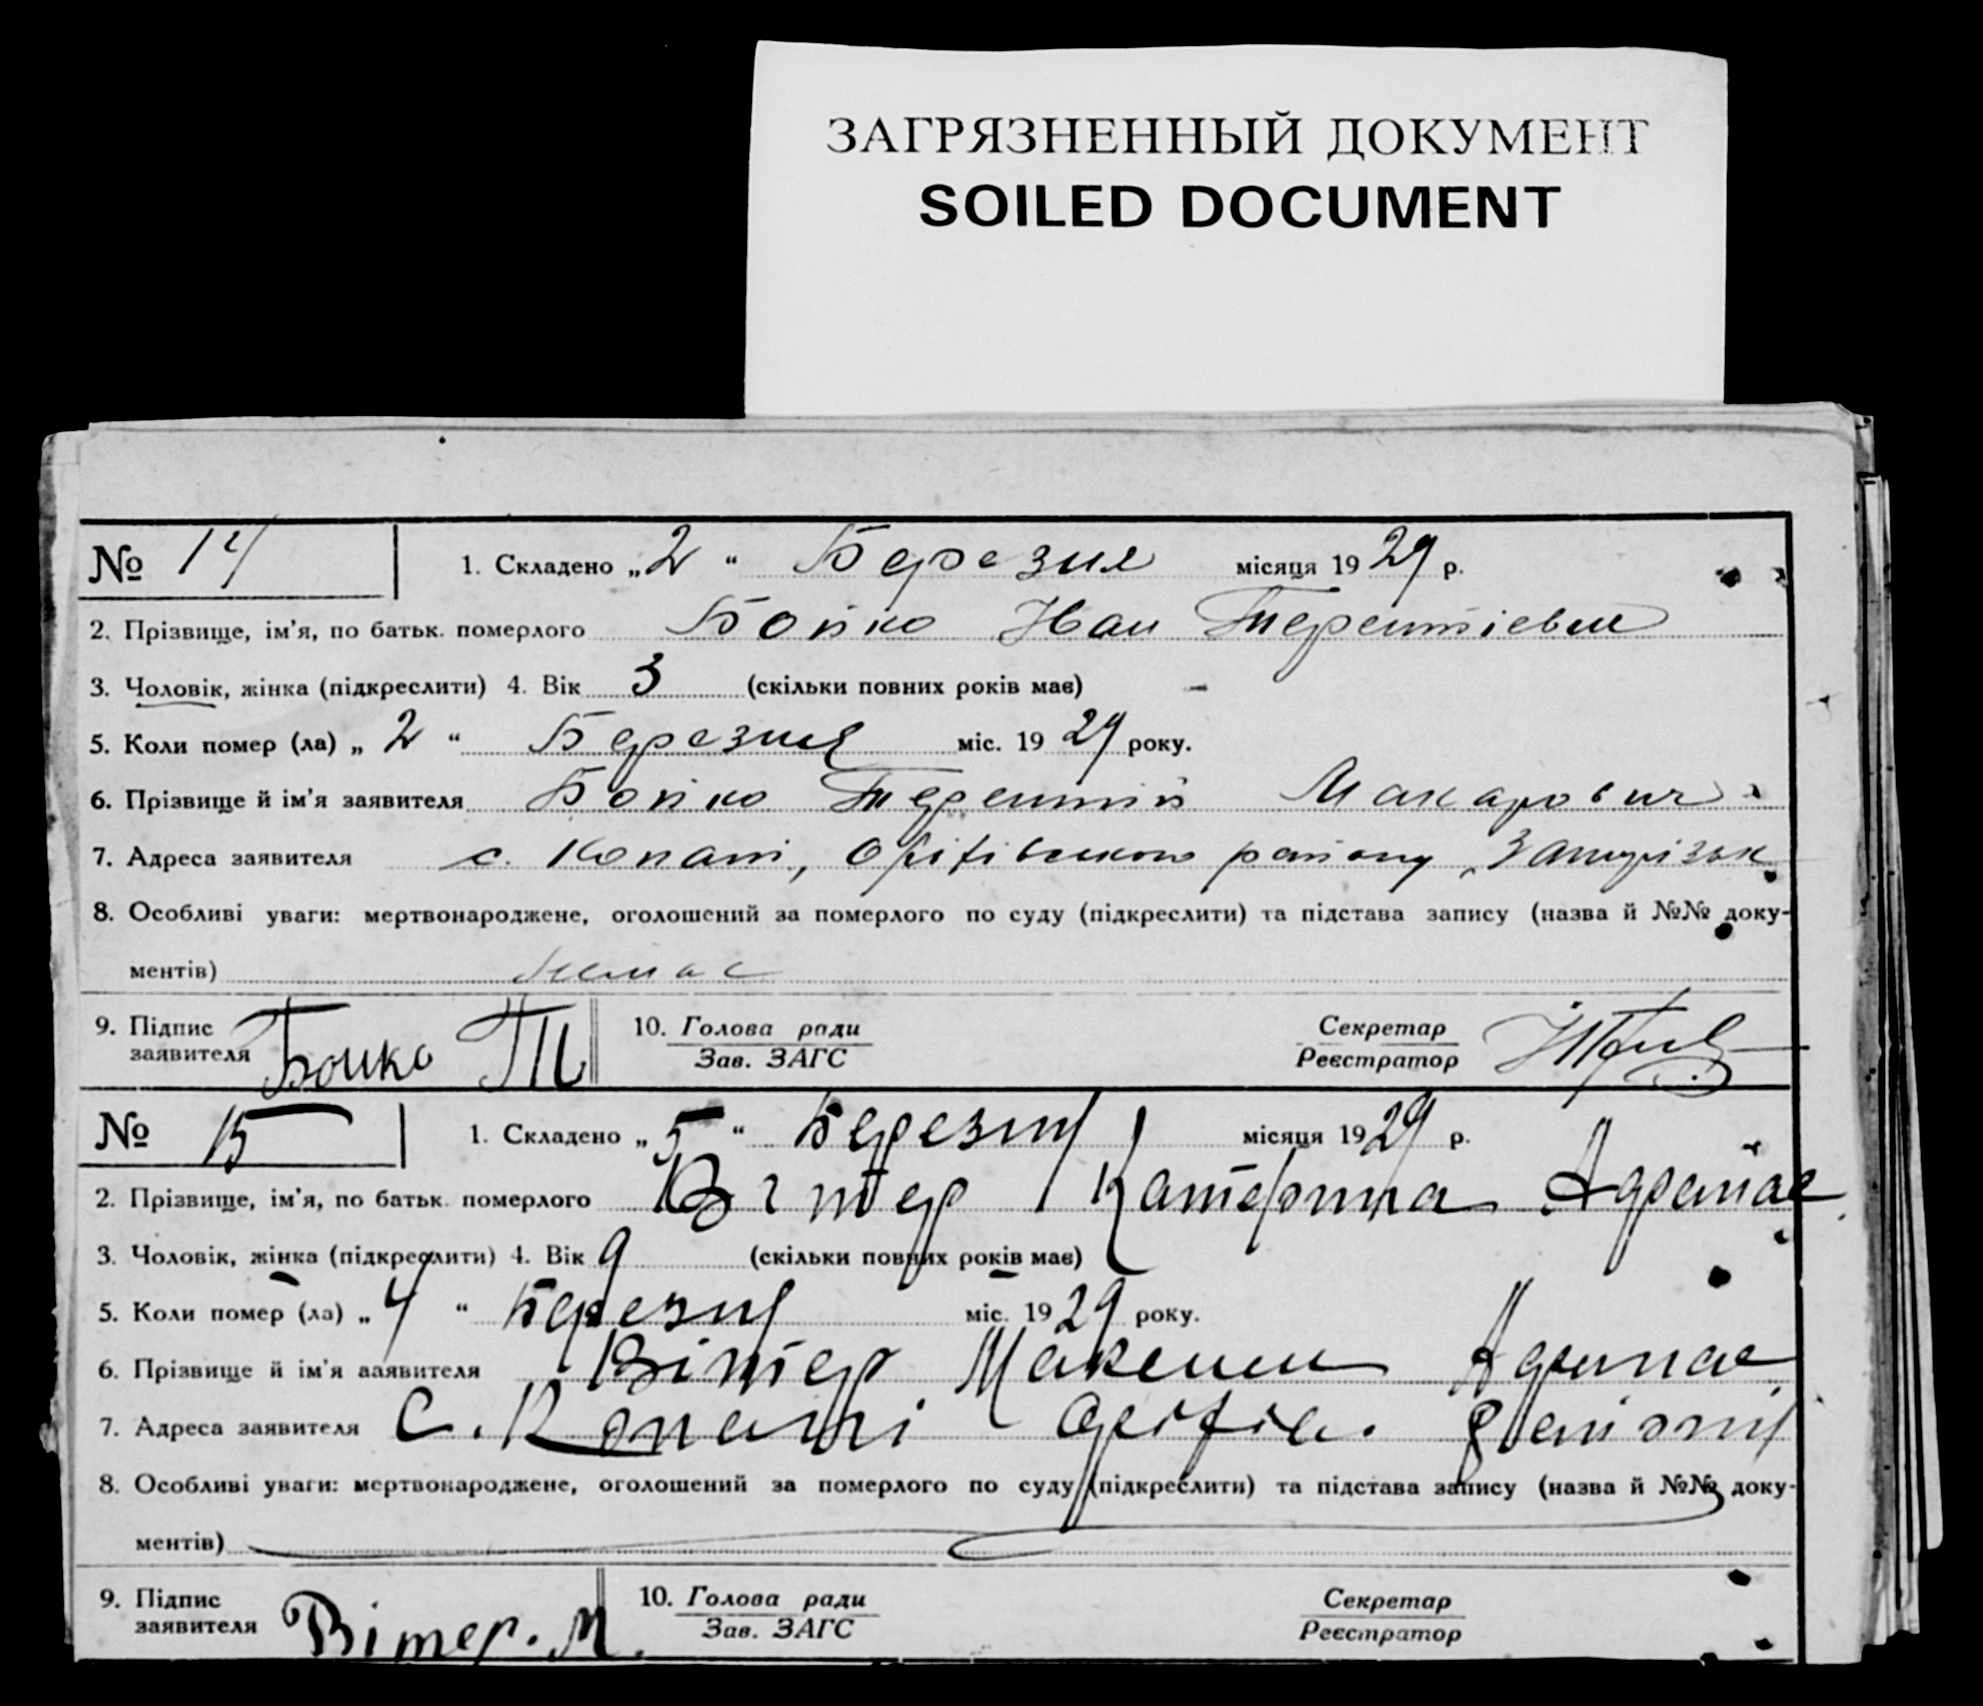 ЗАГРЯЗНЕННЫЙ ДОКУМЕНТ
SOILED DOCUMENT
№ 14 1. Складено „2“ Березня місяця 1929 р.
2. Прізвище, ім'я, по батьк. померлого Бойко Іван Терентієвич
3. Чоловік, жінка (підкреслити) 4. Вік 3 (скільки повних років має)
5. Коли помер (ла) „2“ Березня міс. 1929 року.
6. Прізвище й ім'я заявителя Бойко Терентій Макарович
7. Адреса заявителя с. Копані, Оріхівського району, Запорізьк
8. Особливі уваги: мертвонароджене, оголошений за померлого по суду (підкреслити) та підстава запису (назва й №№ доку-
ментів) немає
9. Підпис заявителя Бойко Т 10. Голова ради Зав. ЗАГС Секретар Реєстратор
№ 15 1. Складено „5“ Березня місяця 1929 р.
2. Прізвище, ім'я, по батьк. померлого Вітер Катерина
3. Чоловік, жінка (підкреслити) 4. Вік 9 (скільки повних років має)
5. Коли помер (ла) „4“ Березня міс. 1929 року.
6. Прізвище й ім'я заявителя Вітер
7. Адреса заявителя с. Копані Оріхів.
8. Особливі уваги: мертвонароджене, оголошений за померлого по суду (підкреслити) та підстава запису (назва й №№ доку-
ментів)
9. Підпис заявителя Вітер. М. 10. Голова ради Зав. ЗАГС Секретар Реєстратор